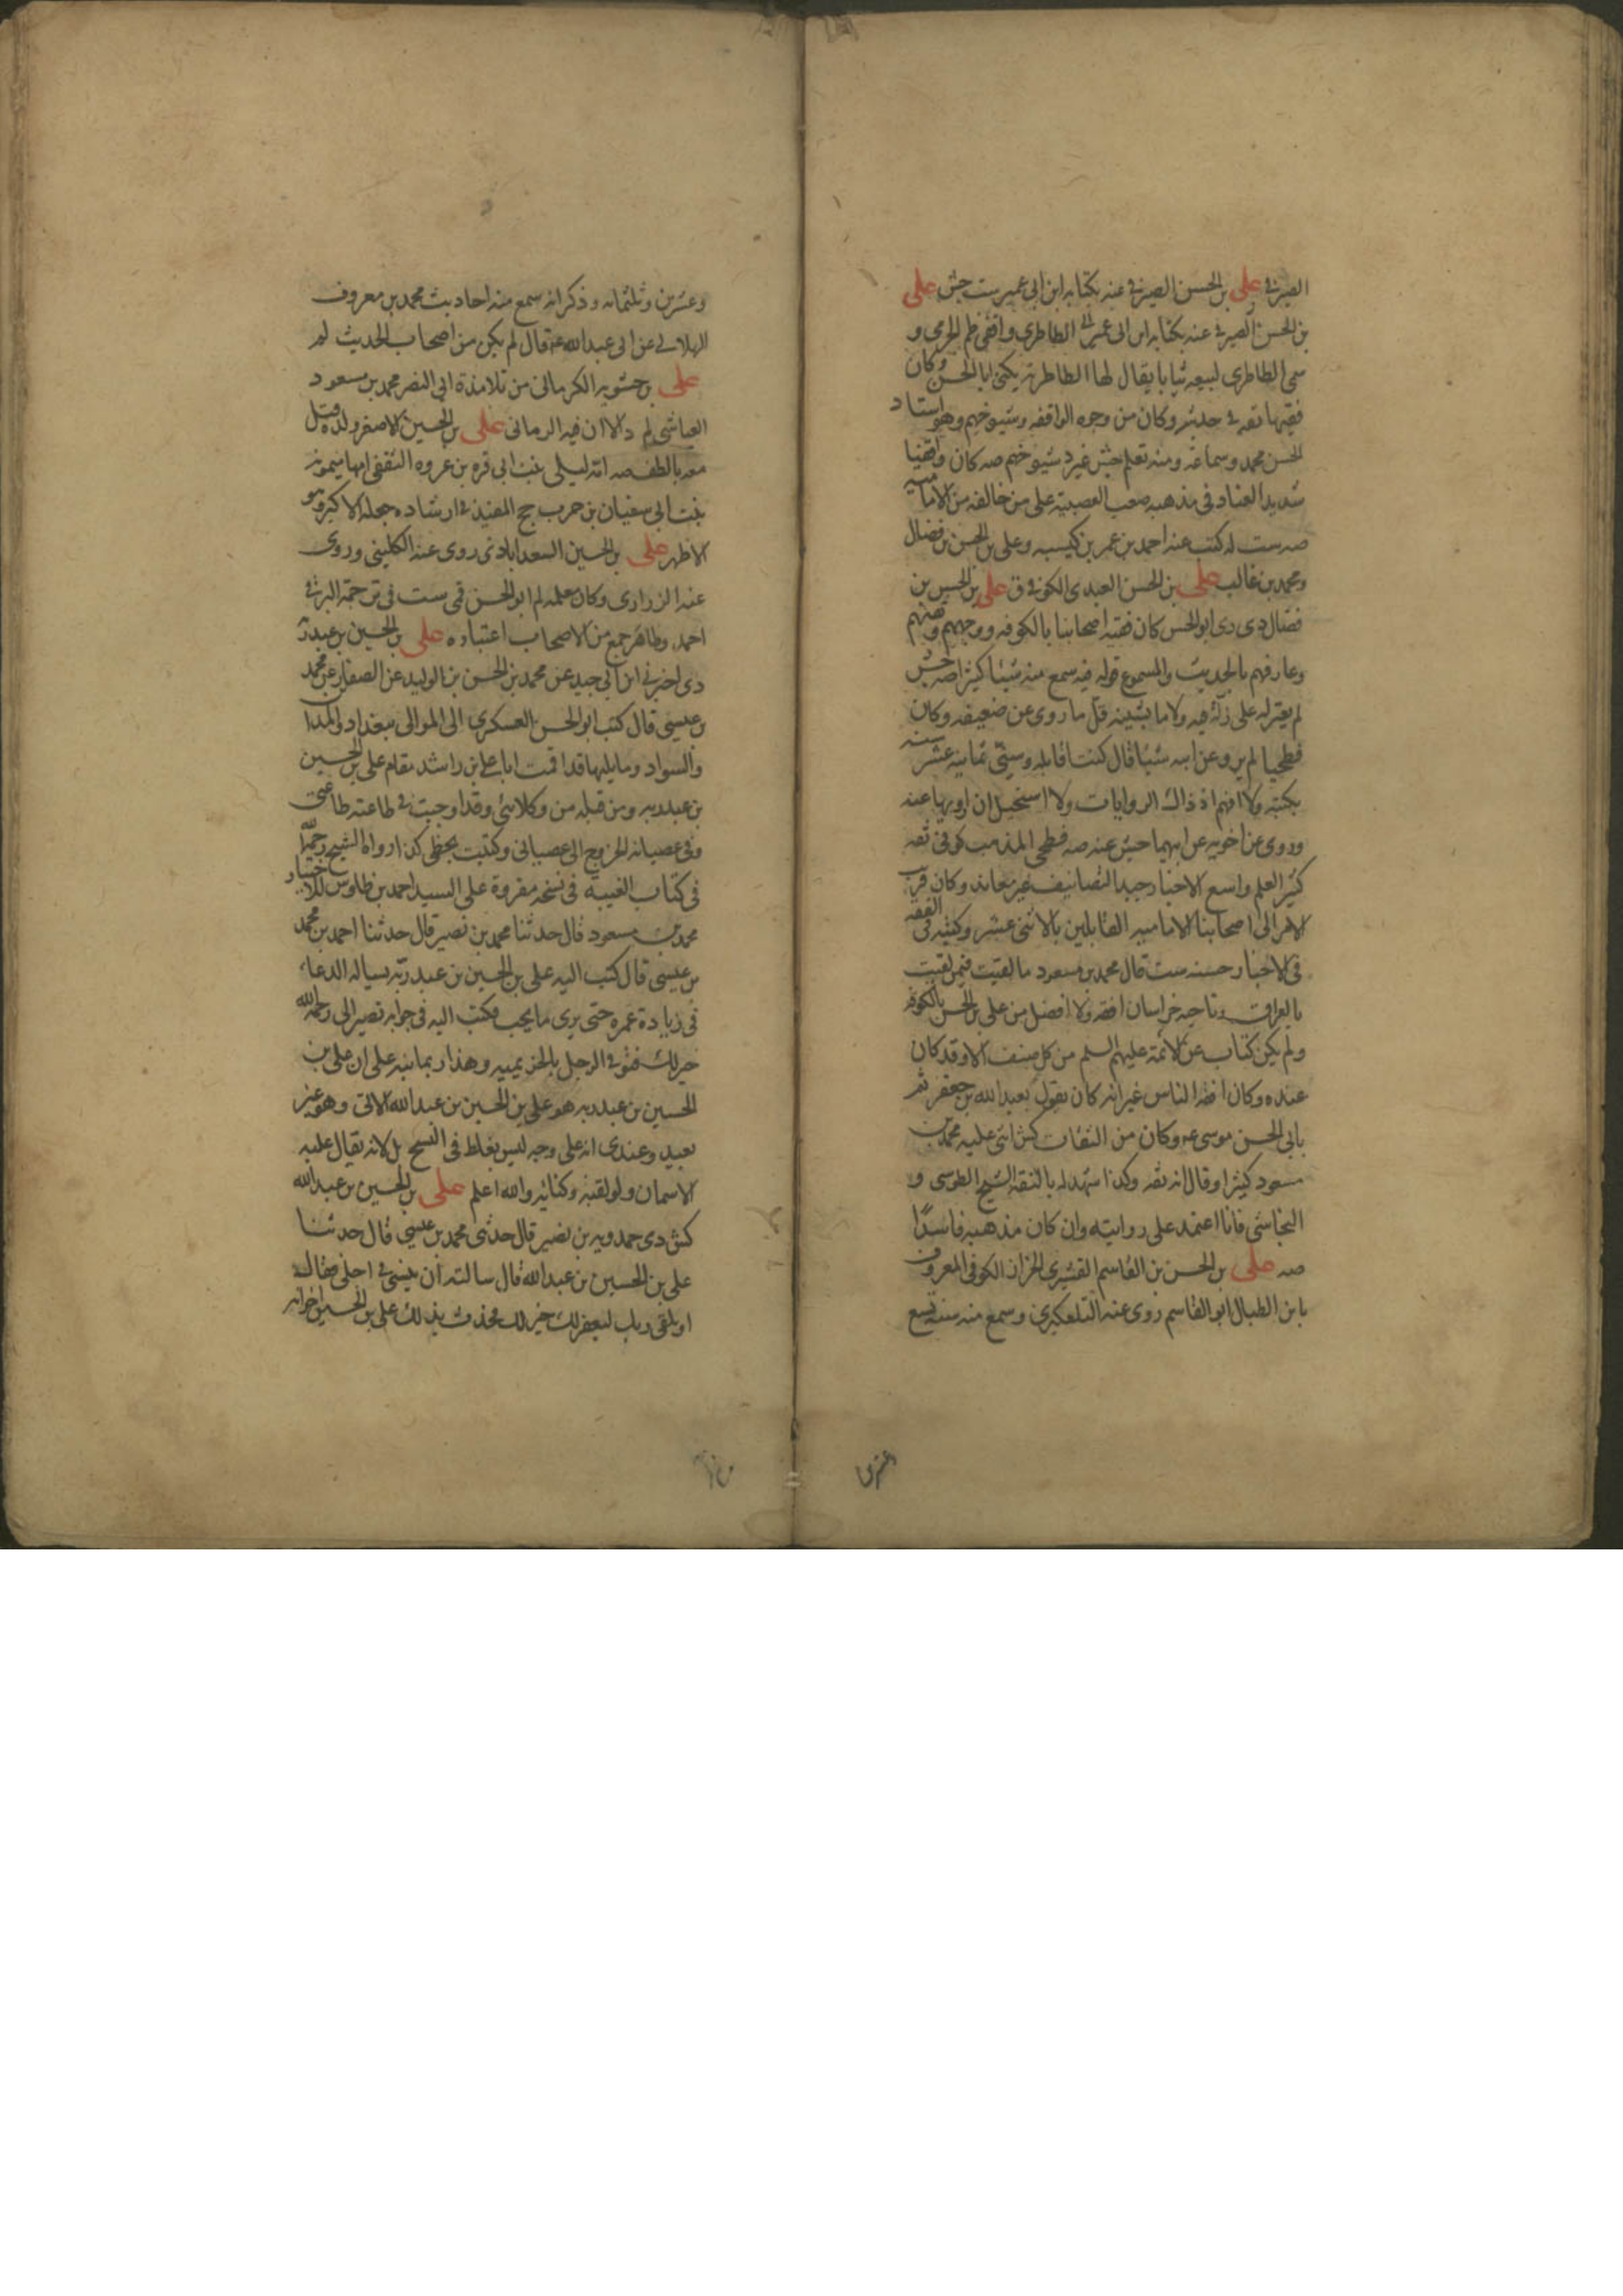 الصيرفى على بن الحسن الصيرفى عنه بكتابه ابن ابى عمير ست جش على
بن الحسن الصيرفى عنه بكتابه ابن ابى عمير الطاطرى واقفى ظم الجرمى و
سمى الطاطرى لبيعه ثيابا يقال لها الطاطرية يكنى ابا الحسن وكان
فقيها ثقه فى حديثه وكان من وجوه الواقفه وشيوخهم وهو استاد
الحسن محمد وسماعه ومنه تعلم جش غير د شيوخهم صه كان واقفيا
شديد العناد فى مذهبه صعب العصبية على من خالفه من الاماميه
صه ست له كتب عنه احمد بن عمر بن كيسبه وعلى بن الحسن بن فضال
ومحمد بن غالب على بن الحسن العبدى الكوفى ق على بن الحسن بن
فضال دى رى ابو الحسن كان فقيه اصحابنا بالكوفه ووجههم وثقتهم
وعارفهم بالحديث والمسموع قوله فيه سمع منه شيئا كثيرا صه جش
لم يعثر له على زلة فيه ولا ما يشينه قل ما روى عن ضعيف وكان
فطحيا لم يرو عن ابيه شيئا قال كنت اقابله وسنى ثمانيه عشر سنه
بكتبه ولا افهم اذ ذاك الروايات ولا استحيل ان ارويها عنه
وروى عن اخويه عن ابيهما جش عنه صه فطحى المذهب كوفى ثقه
كثير العلم واسع الاخبار جيد التصانيف غير معاند وكان قريب
الامر الى اصحابنا الاماميه القايلين بالاثنى عشر وكتبه فى الفقه
فى الاخبار حسنه ست قال محمد بن مسعود ما لقيت فيمن لقيت
بالعراق وناحيه خراسان افقه ولا افضل من على بن الحسن بالكوفه
ولم يكن كتاب عن الائمة عليهم السلم من كل صنف الا وقد كان
عنده وكان افقه الناس غير انه كان يقول بعبد الله بن جعفر ثم
بابى الحسن موسى عه وكان من الثقات كش اثنى عليه محمد بن
مسعود كثيرا وقال انه ثقه وكذا شهد له بالثقة الشيخ الطوسى و
النجاشى فانا اعتمد على روايته وان كان مذهبه فاسدا
صه على بن الحسن بن القاسم القشيرى الخزاز الكوفى المعروف
بابن الطبال ابو القاسم روى عنه التلعكبرى وسمع منه سنه تسع
وعشرين
وعشرين وثلثمائه وذكر انه سمع منه احاديث محمد بن معروف
الهلالى عن ابى عبد الله عه قال لم يكن من اصحاب الحديث لم
على بن حسنويه الكرمانى من تلامذة ابى النضر محمد بن مسعود
العياشى لم د الا ان فيه الرمانى على بن الحسين الاصغر ولده قتل
معه بالطف صه امه ليلى بنت ابى قره بن عروه الثقفى امها ميمونه
بنت ابى سفيان بن حرب جخ المفيد فى ارشاده جعله الاكبر وهو
الاظهر على بن الحسين السعدابادى روى عنه الكلينى وروى
عنه الزرارى وكان معلمه لم ابو الحسن قمى ست فى ترجمة البرقى
احمد وظاهر جمع من الاصحاب اعتباره على بن الحسين بن عبد ربه
دى اخبرنى ابن ابى جيد عن محمد بن الحسن بن الوليد عن الصفار عن محمد
بن عيسى قال كتب ابو الحسن العسكرى الى الموالى ببغداد والمدا
والسواد وما يليها قد اقمت ابا على بن راشد مقام على بن الحسين
بن عبد ربه ومن قبله من وكلائى وقد اوجبت فى طاعته طاعتى
وفى عصيانه الخروج الى عصيانى وكتبت بخطى كذا رواه الشيخ رحمه الله
فى كتاب الغيبه فى نسخه مقروة على السيد احمد بن طاوس للاختيار
محمد بن مسعود قال حدثنا محمد بن نصير قال حدثنا احمد بن محمد
بن عيسى قال كتب اليه على بن الحسين بن عبد ربه يساله الدعاء
فى زيادة عمره حتى يرى ما يحب فكتب اليه فى جوابه تصير الى رحمة الله
خير لك فتوفى الرجل بالخزيميه وهذا ربما ينبه على ان على بن
الحسين بن عبد ربه هو على بن الحسين بن عبد الله الاتى وهو غير
بعيد وعندى انه على وجه ليس بغلط فى النسخ بل لانه يقال عليه
الاسمان ولو لقبه وكنايه والله اعلم على بن الحسين بن عبد الله
كش دى حمدويه بن نصير قال حدثنى محمد بن عيسى قال حدثنا
على بن الحسين بن عبد الله قال سالته ان ينسئ فى اجلى فقال
او تلقى ربك ليغفر لك خير لك فحدث بذلك على بن الحسين اخوانه